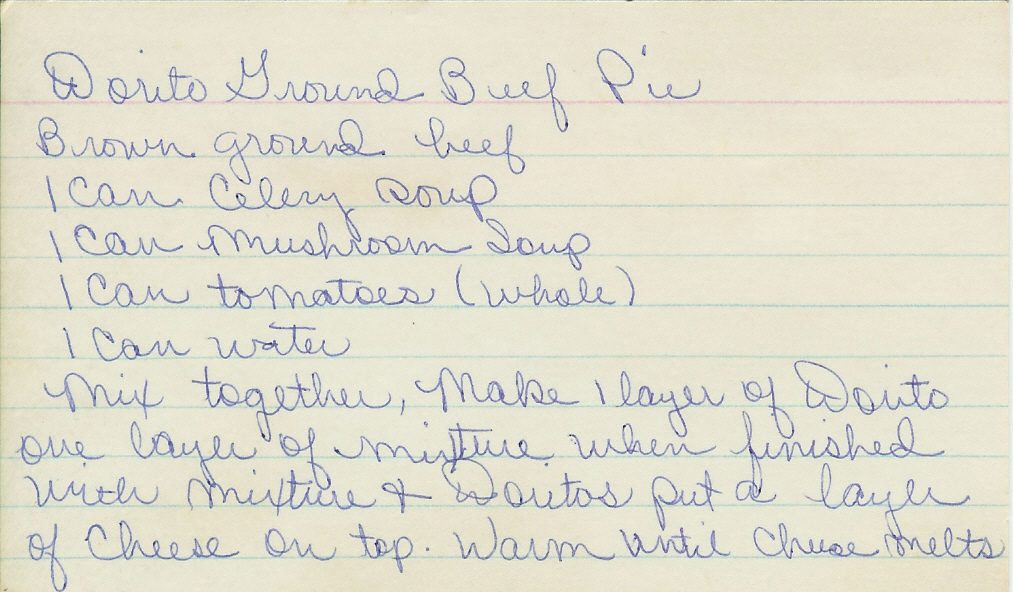 Dorito Ground Beef Pie
Brown ground beef
1 Can Celery Soup
1 Can Mushroom Soup
1 Can tomatoes (whole)
1 Can water
Mix together, Make 1 layer of Dorito
one layer of mixture when finished
with mixture & Doritos put a layer
of Cheese on top. Warm until cheese melts